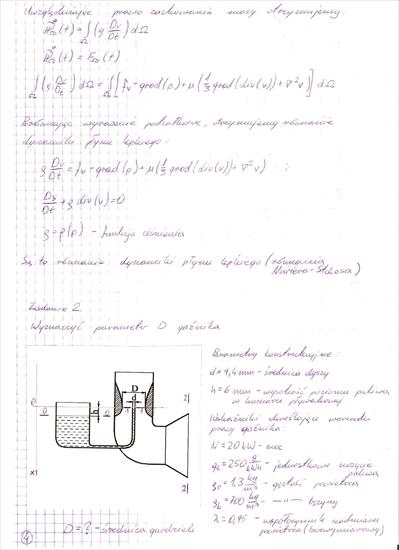 Uwzględniając prawo zachowania masy otrzymujemy:
Ṗ_Ω(t) = ∫_Ω (ρ Dv/Dt) dΩ
Ṗ_Ω(t) = F_Ω(t)
∫_Ω (ρ Dv/Dt) dΩ = ∫_Ω [f_v - grad(p) + μ(1/3 grad(div(v)) + ∇²v)] dΩ
wyrażenie podcałkowe, otrzymujemy równanie
dynamiki płynu lepkiego:
ρ Dv/Dt = f_v - grad(p) + μ(1/3 grad(div(v)) + ∇²v) i
Dρ/Dt + ρ div(v) = 0
ρ = ρ(p) - funkcja ciśnienia
Są to równania dynamiki płynu lepkiego (równania
Naviera-Stokesa)
Zadanie 2.
Wyznaczyć parametr D gaźnika
D
d
h
0
0
0
2
2
x1
D = ? - średnica gardzieli
Parametry konstrukcyjne:
d = 1,4 mm - średnica dyszy
h = 6 mm - wysokość poziomu paliwa
w komorze pływakowej
Wskaźniki określające warunki
pracy gaźnika:
N = 20 kW - moc
g_e = 250 g/kWh - jednostkowe zużycie
paliwa
ρ_p = 1,3 kg/m³ - gęstość powietrza
ρ_b = 700 kg/m³ - —〃— benzyny
λ = 0,95 - współczynnik nadmiaru
powietrza (bezwymiarowy)
4